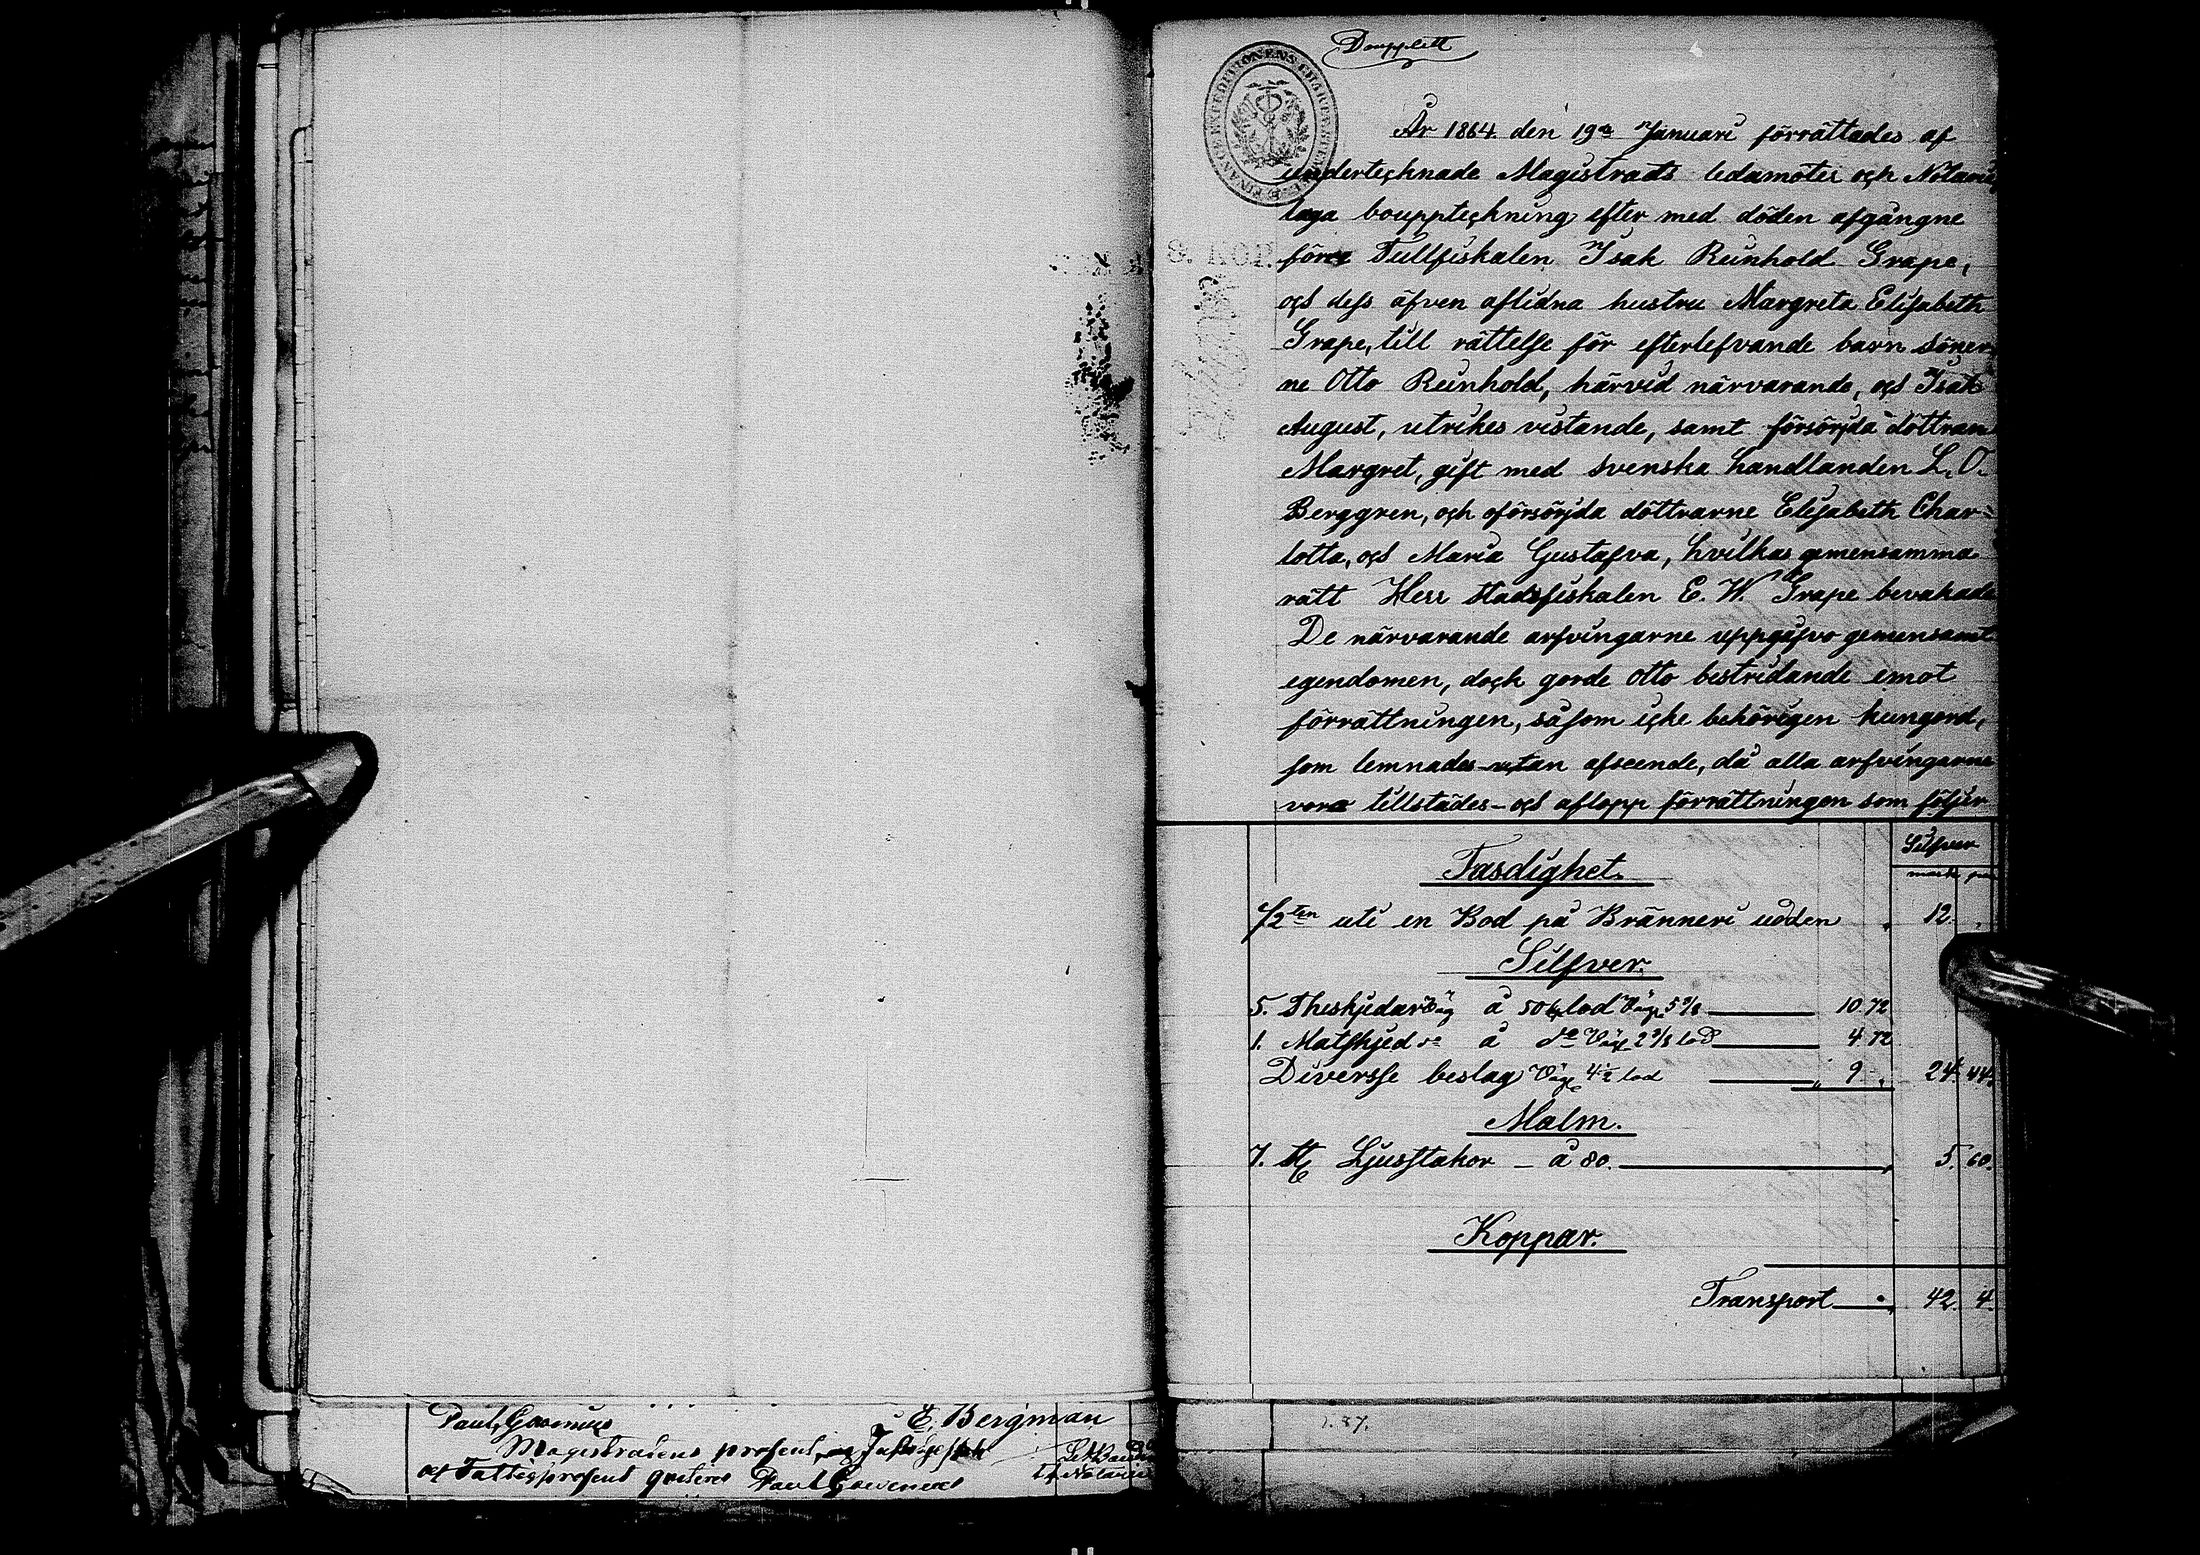 Paul Govenius E. Bergman
Magistratens prosent, och
och Fattigprosent qvitteras Paul Govenius
Dupplett
FINANCE EXPEDITIONENS CHARTÆ
8. KOP.
År 1864 den 19de Januari förrättades af
undertecknade Magistrats ledamöter och Notarie
laga bouppteckning efter med döden afgångne
förra Tullfiskalen Isak Reinhold Grape,
och dess äfven aflidna hustru Margreta Elisabeth
Grape, till rättelse för efterlefvande barn söner-
ne Otto Reinhold, härvid närvarande, och Isak
August, utrikes vistande, samt försörjda döttran
Margret, gift med svenska handlanden L. O.
Berggren, och oförsörjda döttrarne Elisabeth Char-
lotta, och Maria Gustafva, hvilkas gemensamma
rätt Herr Stadsfiskalen E. W. Grape bevakade
De närvarande arfvingarne uppgåfvo gemensamt
egendomen, dock gorde Otto bestridande emot
förrättningen, såsom icke behörigen kungord,
som lemnades utan afseende, då alla arfvingarne
vora tillstädes - och aflopp förrättningen som följer
Silfver
Fasdighet. mark pi
1/2ten uti en Bod på Bränneri udden 12.
Silfver.
5. Theskjedar Väg à 50 lod Väg 5 10 72
1. Matskjed à do Väg 2 lod 4 72
Diversse beslag Väg 4 1/2 lod 9 24. 44.
Malm.
7. St Ljusstakor - à 80. 5. 60.
Koppar.
Transport 42. 4.